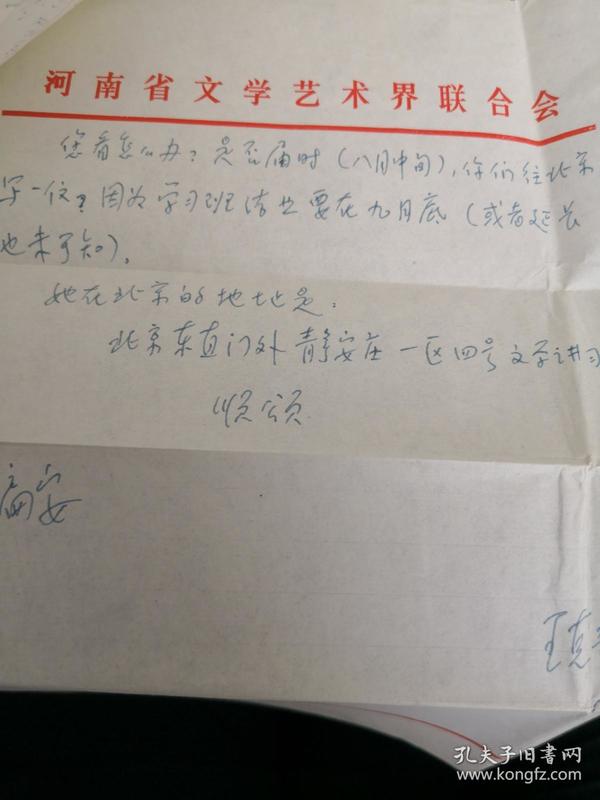 河南省文学艺术界联合会
您看怎么办？是否届时（八月中旬），你们往北京
写一信？因为学习班结业要在九月底（或者延长
也未可知）。
她在北京的地址是：
北京东直门外静安庄一区四号文学讲习
顺颂
编安
王克
孔夫子旧书网
www.kongfz.com